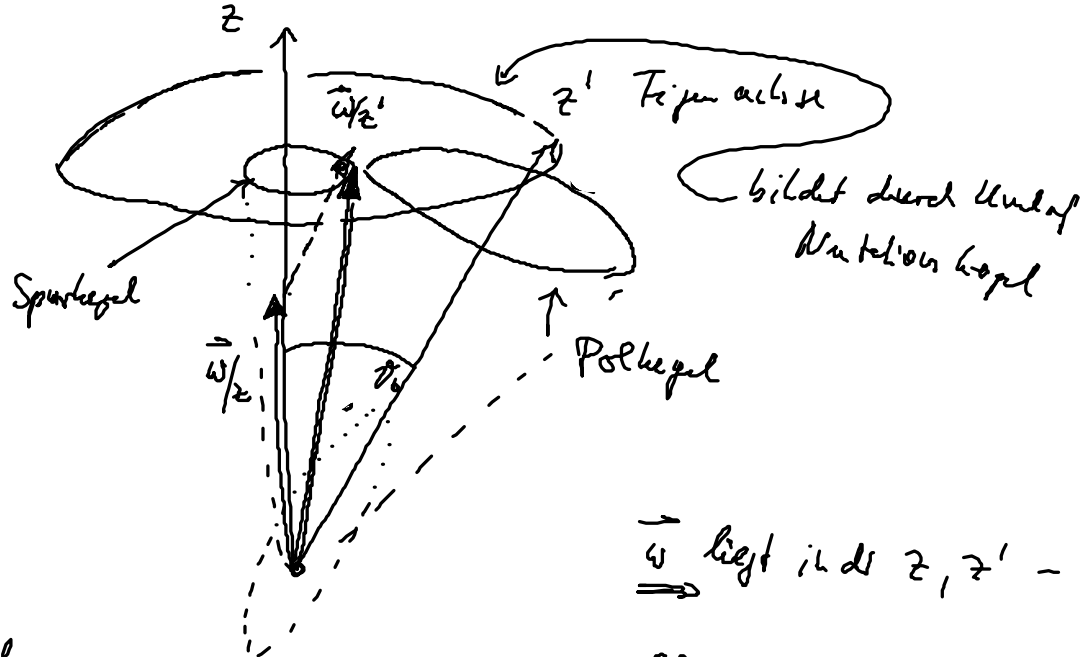 z
ω⃗/z'
z'
Figurenachse
bildet durch Umlauf
Nutationskegel
Spurkegel
ω⃗/z
ϑ₀
Polkegel
ω⃗ liegt in der z, z' –